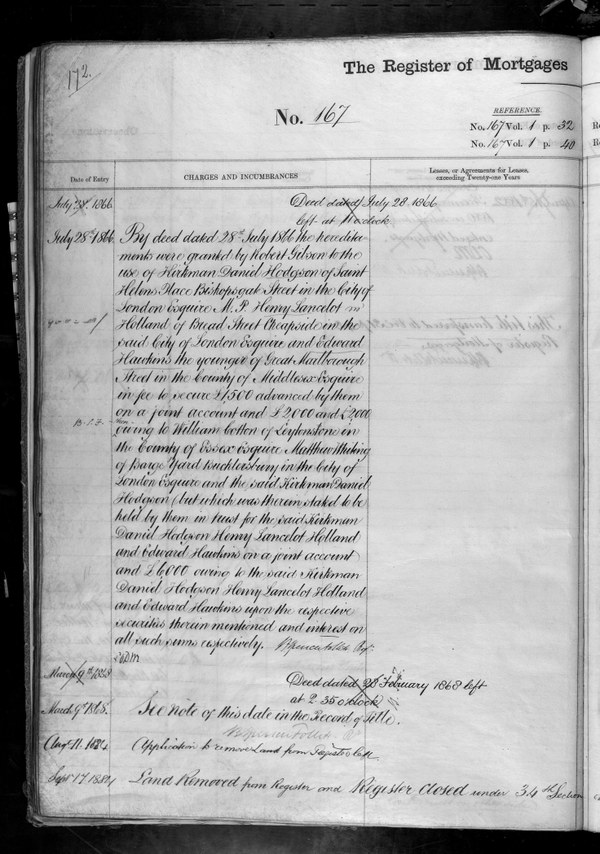 172.
The Register of Mortgages
No. 167
REFERENCE.
No. 167 Vol. 1 p. 32
No. 167 Vol. 1 p. 40
Date of Entry
CHARGES AND INCUMBRANCES
Leases, or Agreements for Leases,
exceeding Twenty-one Years
July 28. 1866
Deed dated July 28 1866
left at o'clock
July 28th 1866
By deed dated 28th July 1866 the heredita-
ments were granted by Robert Gibson to the
use of Kirkman Daniel Hodgson of Saint
Helens Place Bishopsgate Street in the City of
London Esquire M. P. Henry Lancelot
Holland of Bread Street Cheapside in the
said City of London Esquire and Edward
Hawkins the younger of Great Marlborough
Street in the County of Middlesex Esquire
in fee to secure £1,500 advanced by them
on a joint account and £2,000 and £2,000
owing to William Cotton of Leytonstone in
the County of Essex Esquire Matthew Whiting
of Barge Yard Bucklersbury in the City of
London Esquire and the said Kirkman Daniel
Hodgson (but which was therein stated to be
held by them in trust for the said Kirkman
Daniel Hodgson Henry Lancelot Holland
and Edward Hawkins on a joint account
and £6,000 owing to the said Kirkman
Daniel Hodgson Henry Lancelot Holland
and Edward Hawkins upon the respective
securities therein mentioned and interest on
all such sums respectively. Brent Spencer Follett Regr
March 9th 1868
Deed dated 28 February 1868 left
at 2.35 o'clock
March 9th 1868.
See note of this date in the Record of Title.
B Spencer Follett
Augt 11. 1884
Application to remove Land from Register left
Sept 17 1884
Land Removed from Register and Register Closed under 34th Section